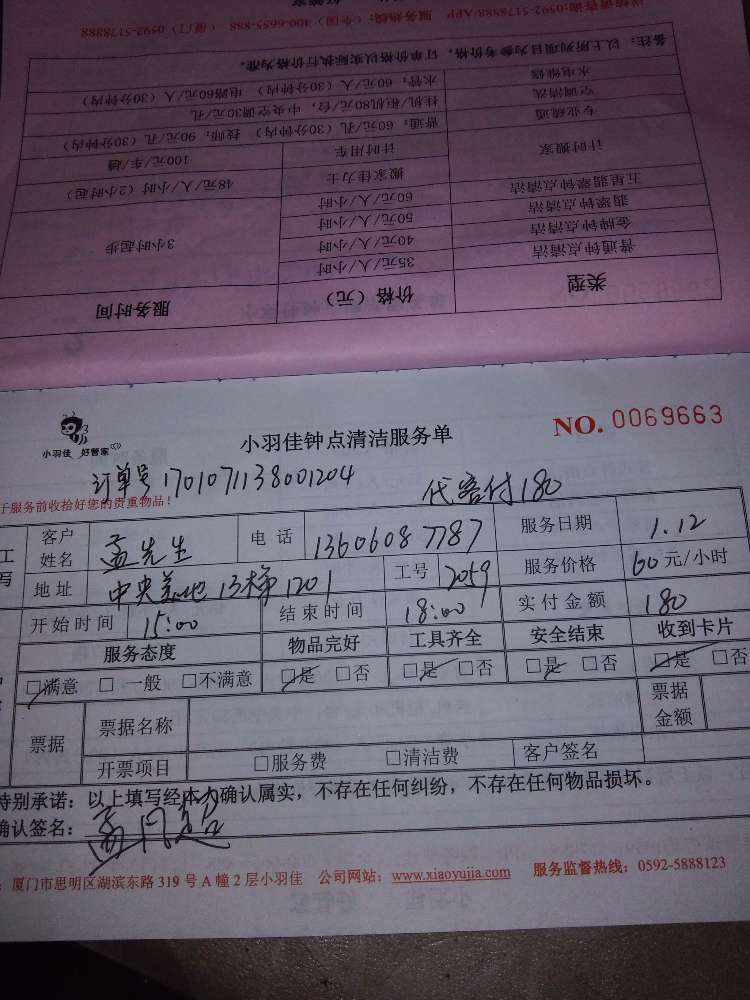 类型 价格（元） 服务时间
普通钟点清洁 35元/人/小时 3小时起步
金牌钟点清洁 40元/人/小时
翡翠钟点清洁 50元/人/小时
五星翡翠钟点清洁 60元/人/小时
计时搬家 搬家佳力士 48元/人/小时（2小时起）
计时用车 100元/车/趟
专业疏通 普通：60元/孔（30分钟内） 技师：90元/孔（30分钟内）
空调清洗 挂机/柜机80元/台；中央空调30元/孔
水电维修 水管：60元/人（30分钟内） 电路60元/人（30分钟内）
备注：以上所列项目为参考价格，订单价格以实际执行价格为准。
详情请咨询:0592-5178888 APP 服务热线：（全国）400-6655-888 （厦门）0592-5178888
小羽佳 好管家
小羽佳钟点清洁服务单
NO. 0069663
订单号 17010711138001204
代客付180
于服务前收拾好您的贵重物品！
客户姓名 孟先生 电话 13606087787 服务日期 1.12
地址 13梯1201 工号 2059 服务价格 60元/小时
开始时间 15:00 结束时间 18:00 实付金额 180
服务态度 物品完好 工具齐全 安全结束 收到卡片
□满意 □一般 □不满意 □是 □否 □是 □否 □是 □否 □是 □否
票据 票据名称 票据金额
开票项目 □服务费 □清洁费 客户签名
特别承诺：以上填写经本人确认属实，不存在任何纠纷，不存在任何物品损坏。
确认签名：
厦门市思明区湖滨东路319号A幢2层小羽佳 公司网站：www.xiaoyujia.com 服务监督热线：0592-5888123